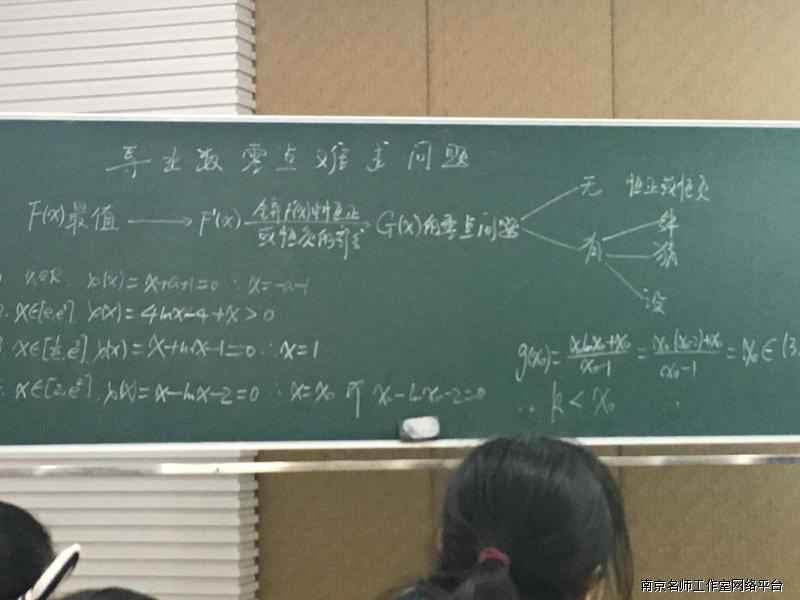 导出数零点难求问题
F(x)最值 → F'(x) 舍弃F'(x)中恒正或恒负的部分 → G(x)的零点问题
无 恒正或恒负
有
解
猜
设
x∈R. h(x)=x+a+1=0 ∴x=-a-1
x∈[e,e²]. h(x)=4lnx-4+x>0
h(x)=x+lnx-1=0 ∴x=1
h(x)=x-lnx-2=0 ∴x=x₀ 即 x₀-lnx₀-2=0
g(x₀)=(x₀lnx₀+x₀)/(x₀-1)=(x₀(x₀-2)+x₀)/(x₀-1)=x₀∈(3,
∴ k<x₀
南京名师工作室网络平台